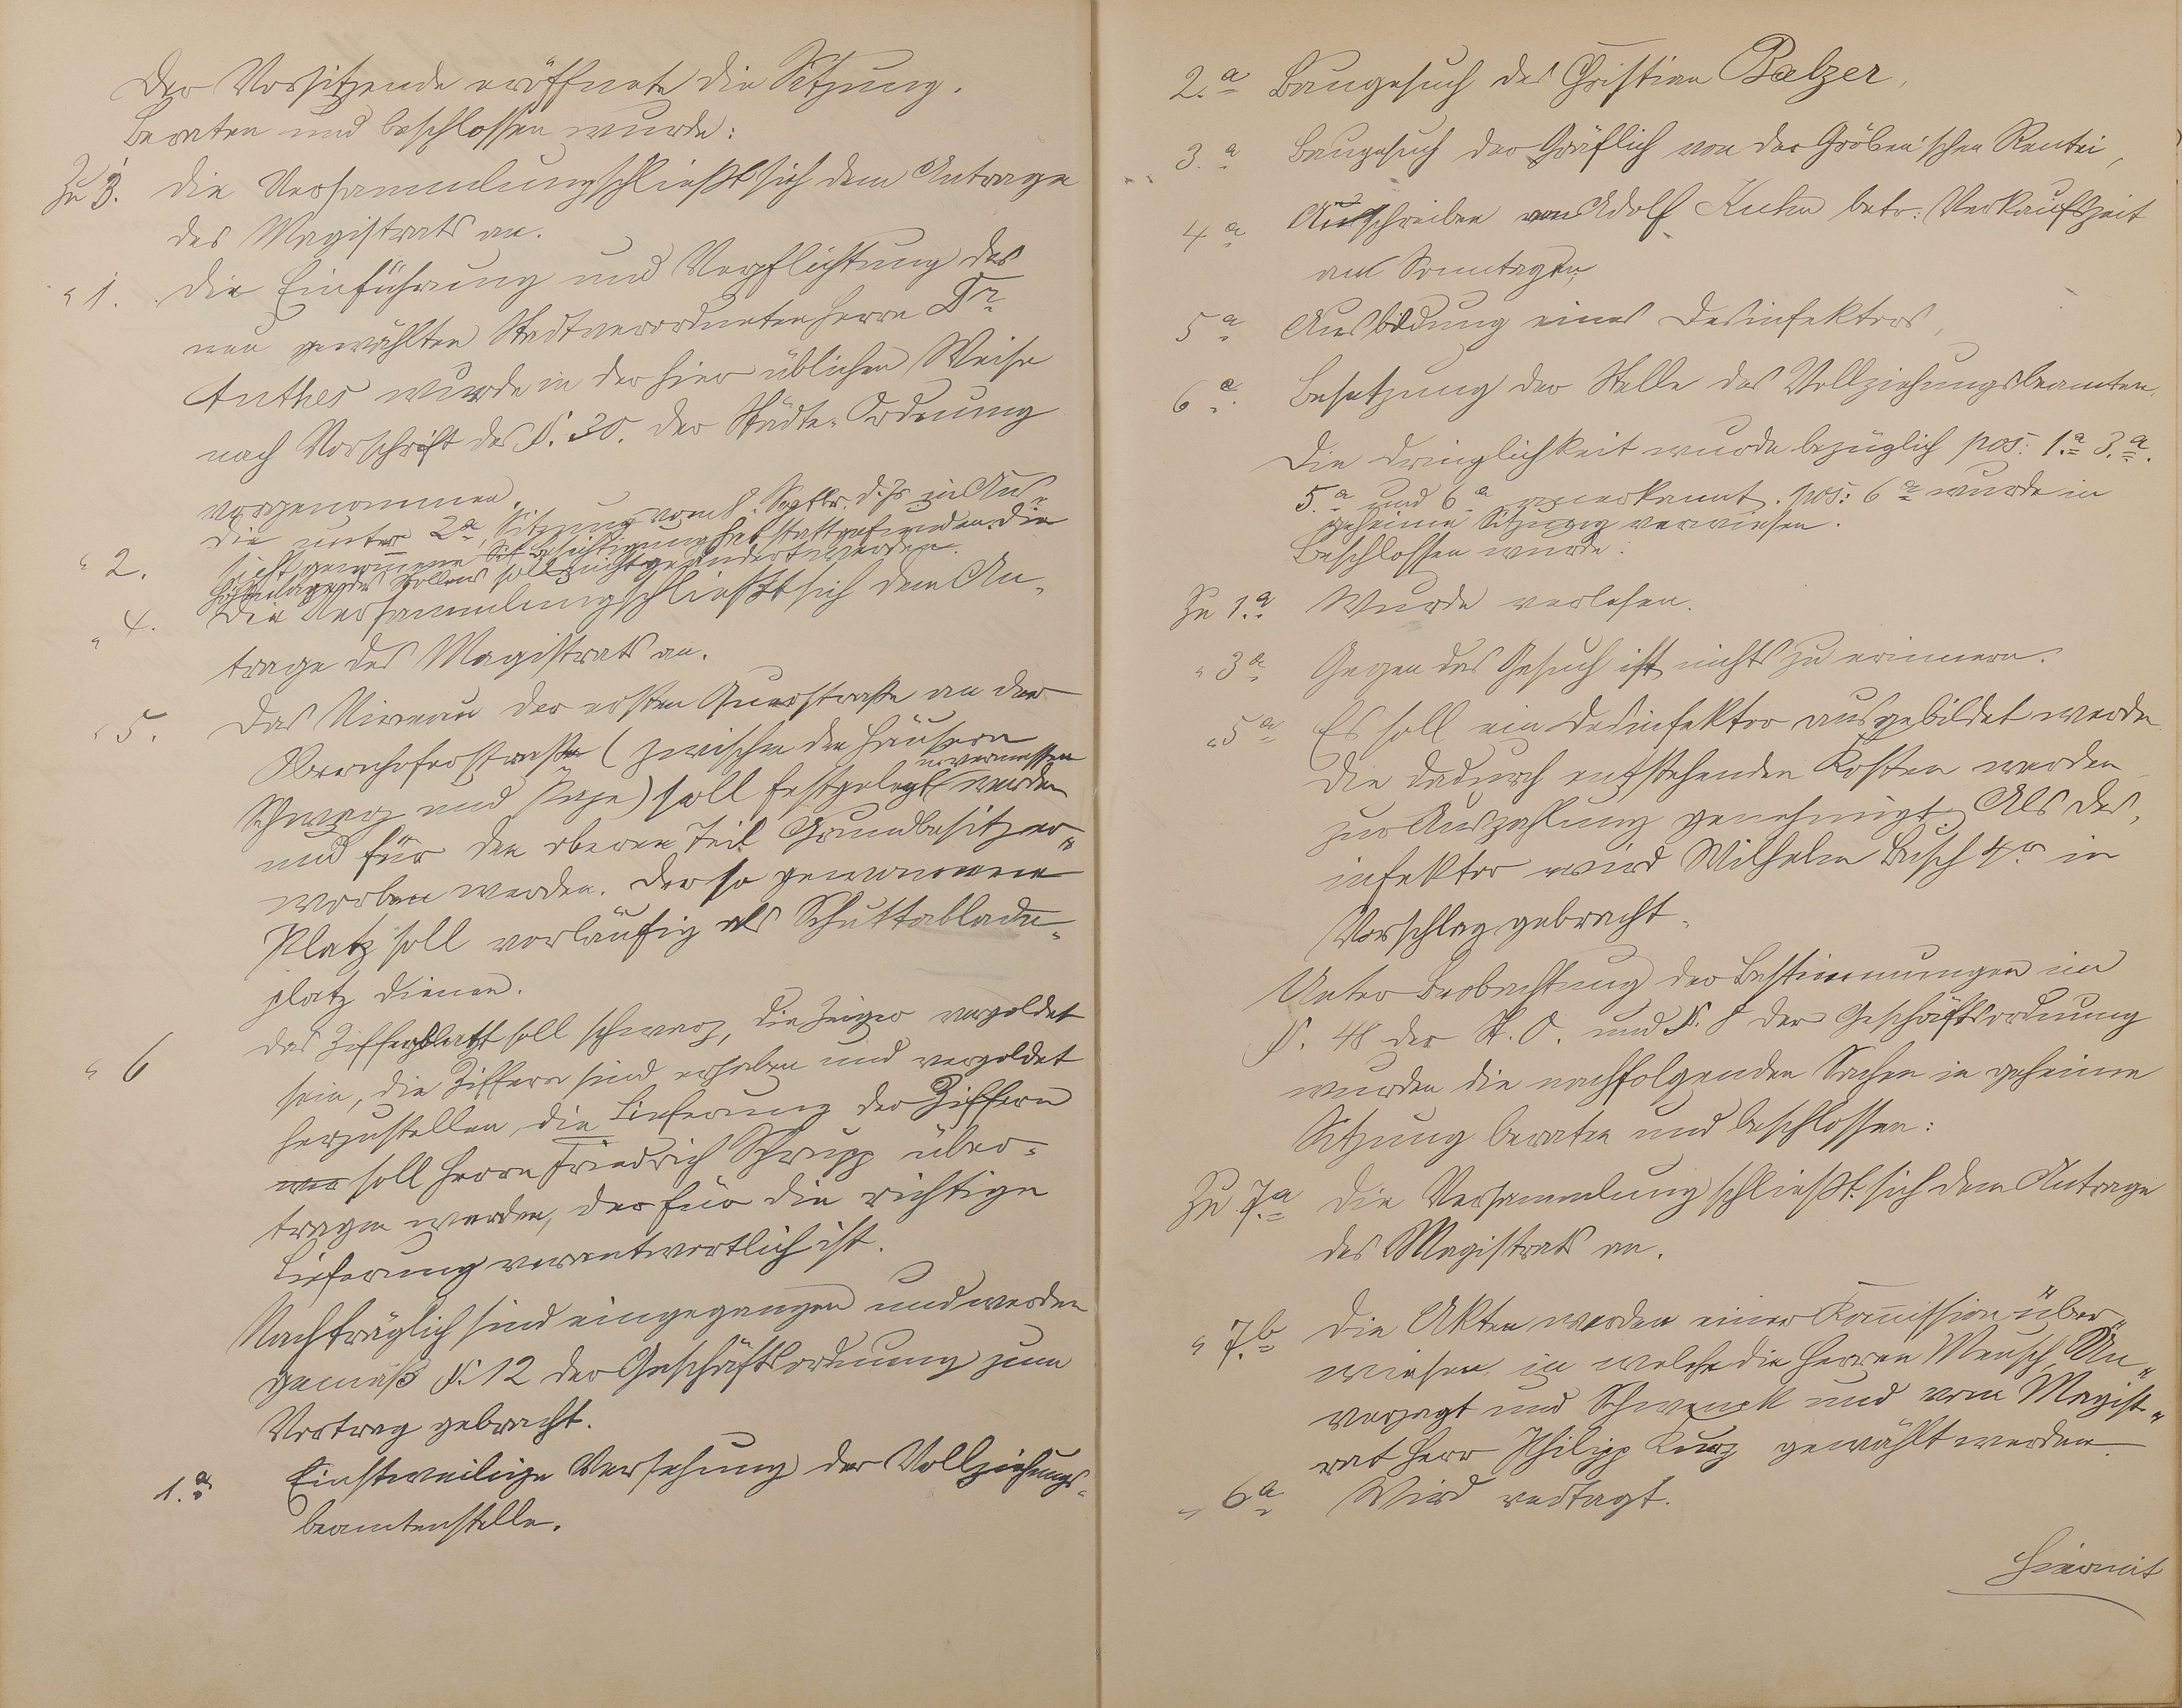 Der Vorsitzende eröffnete die Sitzung.
Beraten und beschlossen wurde:
Zu 3. Die Versammlung schließt sich dem Antrage
des Magistrats an.
" 1. Die Einführung und Verpflichtung des
neu gewählten Stadtverordneten Herrn Dr.
Anthes wurde in der hier üblichen Weise
nach Vorschrift des §. 30. der Städte-Ordnung
vorgenommen.
" 2. Die unter 2a, Sitzung vom 8. Septbr. d. Js in Aus-
sicht genommene Besichtigung hat stattgefunden. Die
soll nicht geändert werden.
" 4. Die Versammlung schließt sich dem An-
trage des Magistrats an.
" 5. Das Niveau der ersten Querstraße an der
Obernhoferstraße (zwischen den Häusern
Schwarz und Pape) soll festgelegt u. vermessen werden
und für den oberen Teil Grundbesitz er-
worben werden. Der so gewonnene
Platz soll vorläufig als Schuttablade-
platz dienen.
" 6 Das Zifferblatt soll schwarz, die Zeiger vergoldet
sein, die Ziffern sind erhaben und vergoldet
herzustellen, die Lieferung der Ziffern
soll Herrn Friedrich Schrupp über-
tragen werden, der für die richtige
Lieferung verantwortlich ist.
Nachträglich sind eingegangen und werden
gemäß §. 12 der Geschäftsordnung zum
Vortrag gebracht.
1.a Einstweilige Versehung der Vollziehungs-
beamtenstelle.
2.a Baugesuch des Christian Balzer,
3.a Baugesuch der Gräflich von der Gröben'schen Rentei,
4a Anschreiben von Adolf Kuhn betr: Verkaufszeit
an Sonntagen,
5a Ausbildung eines Desinfektors,
6a. Besetzung der Stelle des Vollziehungsbeamten.
Die Dringlichkeit wurde bezüglich pos: 1.a 3.a.
5.a und 6a anerkannt. pos: 6a wurde in
geheime Sitzung verwiesen.
Beschlossen wurde:
Zu 1.a Wurde verlesen.
" 3a Gegen das Gesuch ist nichts zu erinnern.
" 5a Es soll ein Desinfektor ausgebildet werden
Die dadurch entstehenden Kosten werden
zur Auszahlung genehmigt. Als Des-
infektor wird Wilhelm Busch 4r in
Vorschlag gebracht.
Unter Beobachtung der Bestimmungen im
§. 48 der St. O. und §. 8 der Geschäftsordnung
wurden die nachfolgenden Sachen in geheime
Sitzung beraten und beschlossen:
Zu 7.a Die Versammlung schließt sich dem Antrage
des Magistrats an.
" 7.b Die Akten werden einer Kommission über-
wiesen, in welche die Herren Mensch, Un-
verzagt und Schwenk und vom Magist-
rat Herr Philipp Kurz gewählt werden.
" 6a Wird vertagt.
Hiermit